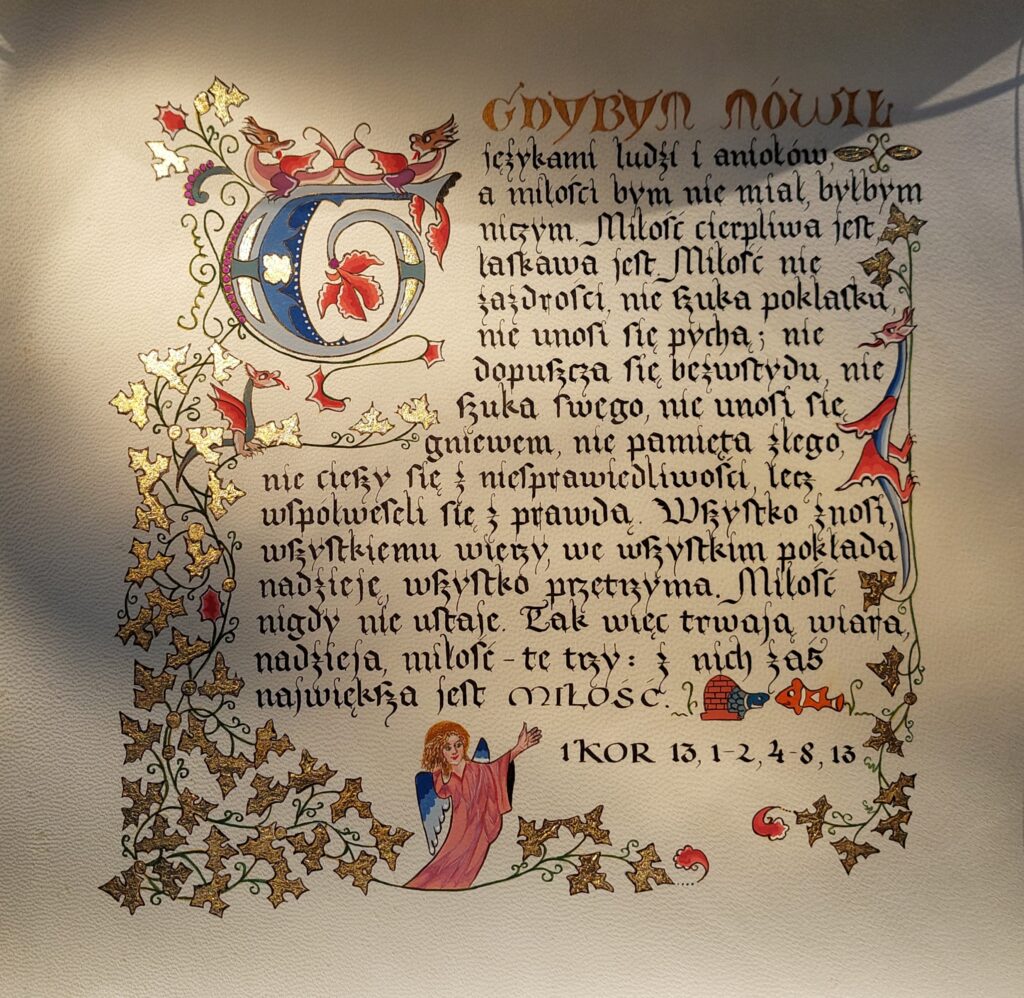 GDYBYM MÓWIŁ
językami ludzi i aniołów,
a miłości bym nie miał, byłbym
niczym. Miłość cierpliwa jest,
łaskawa jest. Miłość nie
zazdrości, nie szuka poklasku,
nie unosi się pychą; nie
dopuszcza się bezwstydu, nie
szuka swego, nie unosi się
gniewem, nie pamięta złego,
nie cieszy się z niesprawiedliwości, lecz
współweseli się z prawdą. Wszystko znosi,
wszystkiemu wierzy, we wszystkim pokłada
nadzieję, wszystko przetrzyma. Miłość
nigdy nie ustaje. Tak więc trwają wiara,
nadzieja, miłość - te trzy: z nich zaś
największa jest MIŁOŚĆ.
1 KOR 13, 1-2, 4-8, 13